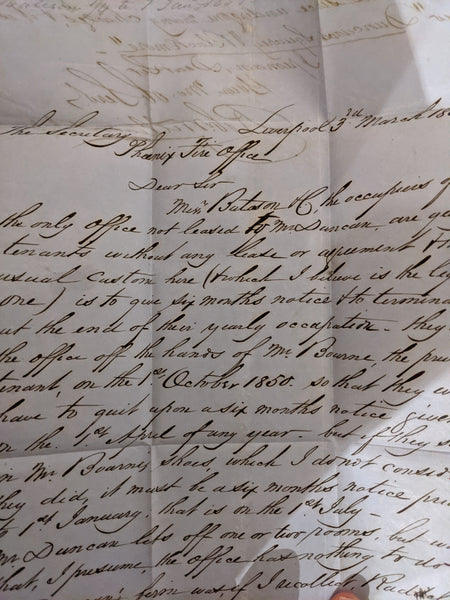 Liverpool 3rd March 18
The Secretary
Phœnix Fire Office
Dear Sir
Messrs Bateson & Co, the occupiers of
the only office not leased to Mr Duncan, are
tenants without any lease or agreement & t
usual custom here (& what I believe is the le
one) is to give six months notice & to termina
at the end of their yearly occupation. they
the office off the hands of Mr Bourne, the pre
tenant, on the 1st October 1850. so that they w
have to quit upon a six months notice given
on the 1st April of any year. but if they s
in Mr Bourne's shoes, which I do not consid
they did, it must be a six months notice pri
to 1st January, that is on the 1st July-
Mr Duncan lets off one or two rooms, but w
that, I presume, the office has nothing to do
firm was if I recollect